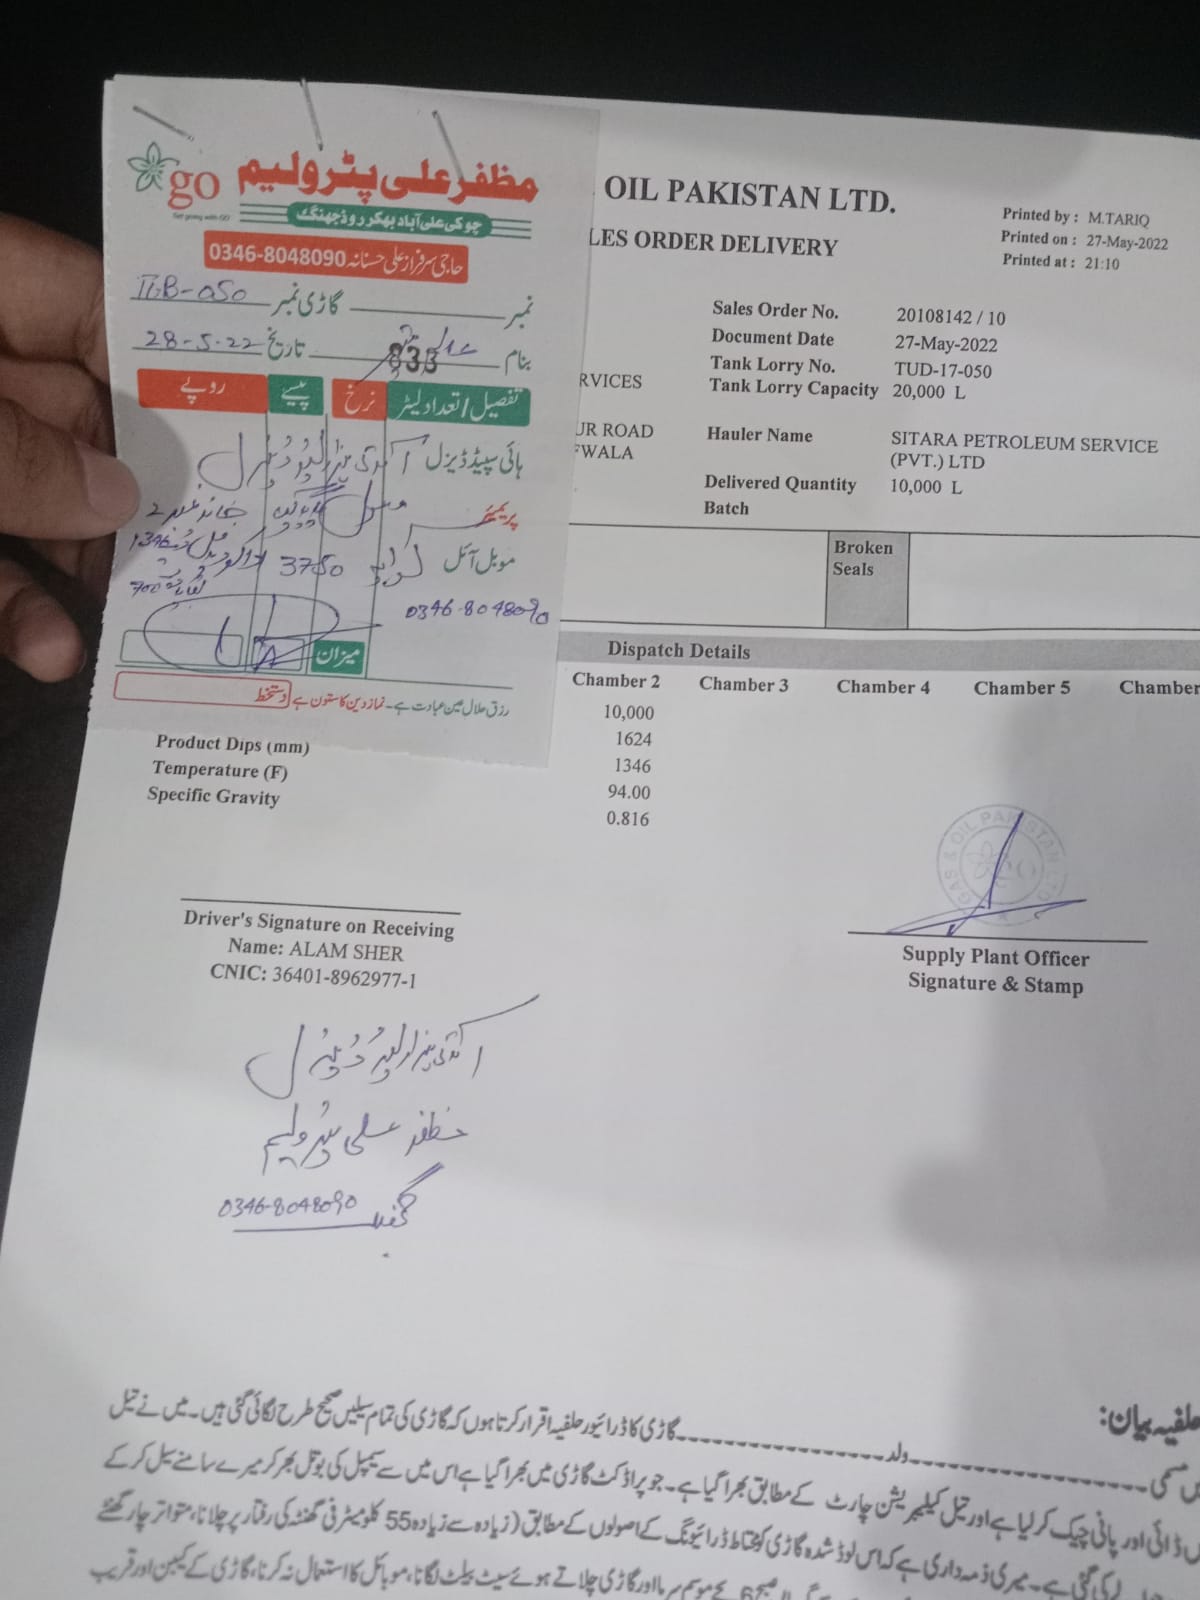 go
مظفر علی پٹرولیم
چوکی علی آباد بھکر روڈ جھنگ
حاجی سرفراز علی حسنانہ 0346-8048090
نمبر گاڑی نمبر
بنام 833 تاریخ 28-5-22
تفصیل / تعداد لیٹر نرخ پیسے روپے
ہائی سپیڈ ڈیزل
پریمیئر
موبل آئل 3750
1346
700
0346-8048090
میزان
رزق حلال عین عبادت ہے۔ نماز دین کا ستون ہے دستخط
OIL PAKISTAN LTD.
LES ORDER DELIVERY
Printed by : M.TARIQ
Printed on : 27-May-2022
Printed at : 21:10
Sales Order No. 20108142 / 10
Document Date 27-May-2022
Tank Lorry No. TUD-17-050
RVICES
Tank Lorry Capacity 20,000 L
UR ROAD
Hauler Name SITARA PETROLEUM SERVICE
FWALA
(PVT.) LTD
Delivered Quantity 10,000 L
Batch
Broken
Seals
Dispatch Details
Chamber 2 Chamber 3 Chamber 4 Chamber 5 Chamber
10,000
1624
Product Dips (mm) 1346
Temperature (F) 94.00
Specific Gravity 0.816
GAS & OIL PAKISTAN LTD
Driver's Signature on Receiving
Name: ALAM SHER
CNIC: 36401-8962977-1
Supply Plant Officer
Signature & Stamp
مظفر علی پٹرولیم
0346-8048090
حلفیہ بیان:
مسمی ولد گاڑی کا ڈرائیور حلفیہ اقرار کرتا ہوں کہ گاڑی کی تمام سیلیں صحیح طرح لگائی گئی ہیں۔ میں نے تیل
ڈائی اور پانی چیک کر لیا ہے اور تیل کیلیبریشن چارٹ کے مطابق بھرا گیا ہے۔ جو پراڈکٹ گاڑی میں بھرا گیا ہے اس میں سے سیمپل کی بوتل بھر کر میرے سامنے سیل کر کے
کی گئی ہے۔ میری ذمہ داری ہے کہ اس لوڈ شدہ گاڑی کو محتاط ڈرائیونگ کے اصولوں کے مطابق (زیادہ سے زیادہ 55 کلو میٹر فی گھنٹہ کی رفتار پر چلانا، متواتر چار گھنٹے
گاڑی چلاتے ہوئے سیٹ بیلٹ لگانا، موبائل کا استعمال نہ کرنا، گاڑی کے کیبن اور قریب